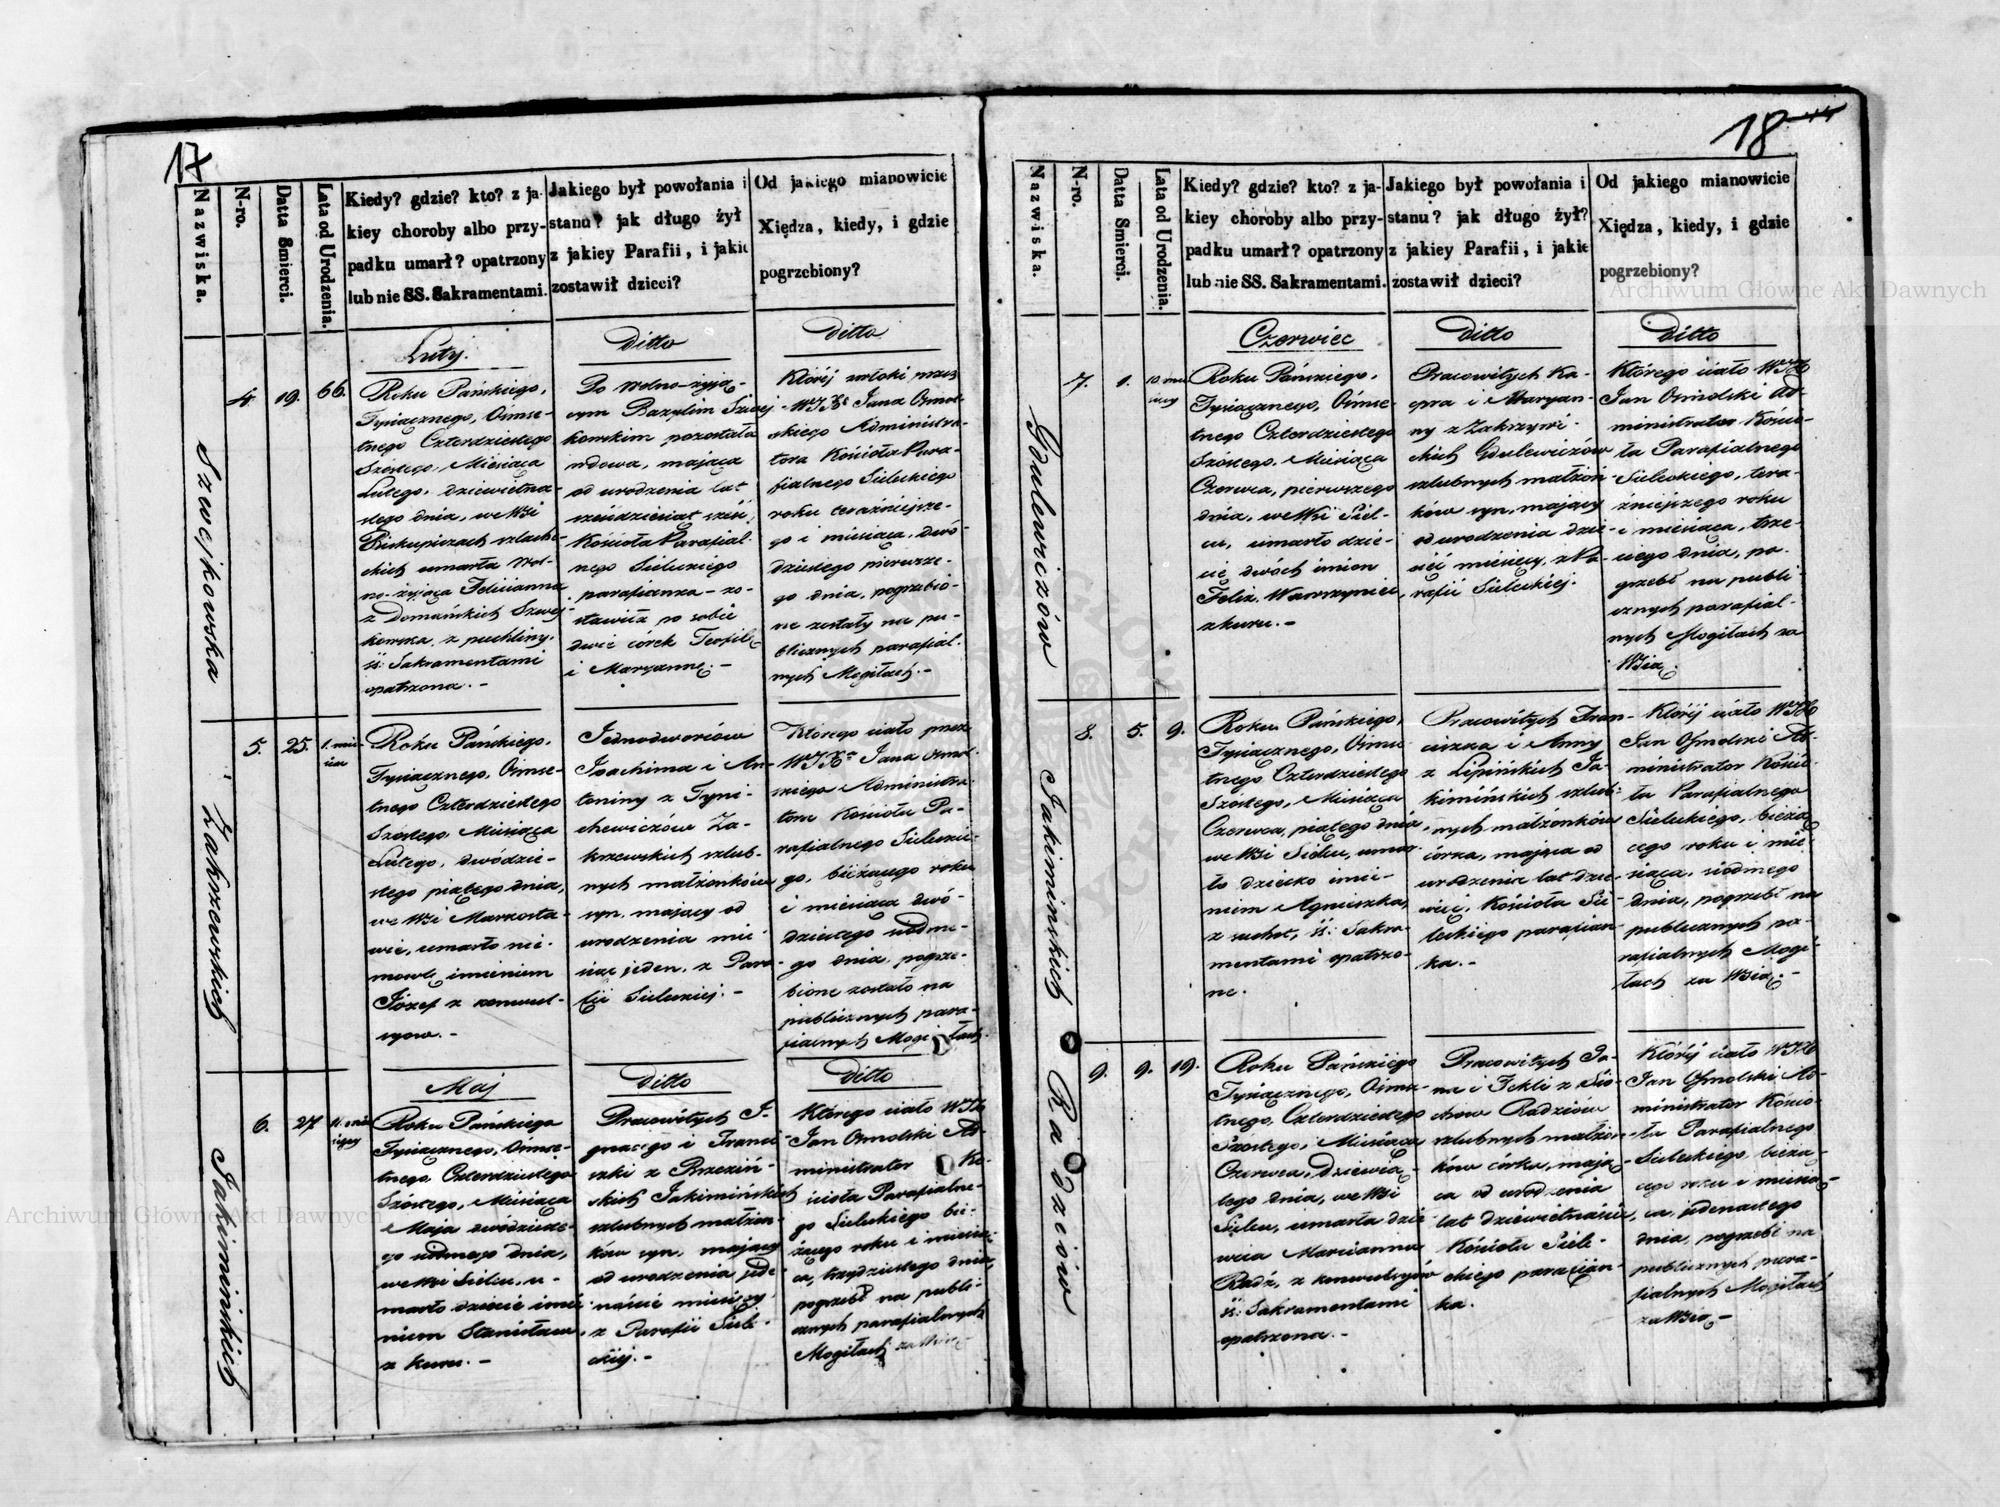 17
Nazwiska.
N-ro.
Datta Smierci.
Lata od Urodzenia.
Kiedy? gdzie? kto? z ja-
kiey choroby albo przy-
padku umarł? opatrzony
lub nie SS. Sakramentami.
Jakiego był powołania i
stanu? jak długo żył
z jakiey Parafii, i jakie
zostawił dzieci?
Od jakiego mianowicie
Xiędza, kiedy, i gdzie
pogrzebiony?
Szwejkowska
4.
19.
66.
Luty.
Roku Pańskiego,
Tysiącznego, Ośmse-
tnego Czterdziestego
Szóstego, Miesiąca
Lutego, dziewietna-
stego dnia, we Wsi
Biskupiczach szlache-
ckich umarła Wol-
no-żyjąca Felicianna
z Domańskich Szwej-
kowska, z puchliny,
ŚŚ: Sakramentami
opatrzona. -
Ditto
Po Wolno-żyją-
cym Bazylim Szwej-
kowskim pozostała
wdowa, mająca
od urodzenia lat
sześdziesiąt sześć,
Kościoła Parafial-
nego Sieleckiego
parafianka - zo-
stawiła po sobie
dwie córek Teofilę
i Maryannę. -
Ditto
Której zwłoki przez
WJX Jana Osmol-
skiego Administra-
tora Kościoła Para-
fialnego Sieleckiego
roku teraźniejsze-
go i miesiąca, dwó-
dziestego pierwsze-
go dnia, pogrzebio-
ne zostały na pu-
blicznych parafial-
nych Mogiłach. -
Zakrzewskich
5.
25.
1. mie-
siąc
Roku Pańskiego,
Tysiącznego, Ośmse-
tnego Czterdziestego
Szóstego, Miesiąca
Lutego, dwódzie-
stego piątego dnia,
we Wsi Markosta-
wie, umarło nie-
mowle imieniem
Józef z konwul-
syow. -
Jednodworców
Joachima i An-
toniny z Tyni-
chewiczów Za-
krzewskich szlub-
nych małżonków
syn, mający od
urodzenia mie-
siąc jeden, z Para-
fii Sieleckiej. -
Którego ciało przez
WJX Jana Osmol-
skiego Administra-
tora Kościoła Pa-
rafialnego Sieleckie-
go, bieżącego roku
i miesiąca dwó-
dziestego siódme-
go dnia, pogrze-
bione zostało na
publicznych para-
fialnych Mogiłach.
Jakimińskich
6.
27
11. mie-
sięcy
Maj
Roku Pańskiego
Tysiącznego, Ośmse-
tnego Czterdziestego
Szóstego, Miesiąca
Maja dwódzieste-
go siódmego dnia,
we Wsi Sielcu, u-
marło dziecie imie-
niem Stanisław
z kuru. -
Ditto
Pracowitych I-
gnacego i Franci-
szki z Brzeziń-
skich Jakimińskich
szlubnych małżon-
ków syn, mający
od urodzenia jede-
naście miesięcy
z Parafii Siele-
ckiej. -
Ditto
Którego ciało WJX
Jan Osmolski Ad-
ministrator Ko-
ścioła Parafialne-
go Sieleckiego bie-
żącego roku i miesią-
ca, trzydziestego dnia,
pogrzebł na publi-
cznych parafialnych
Mogiłach za Wsią
18
Nazwiska.
N-ro.
Datta Smierci.
Lata od Urodzenia.
Kiedy? gdzie? kto? z ja-
kiey choroby albo przy-
padku umarł? opatrzony
lub nie SS. Sakramentami.
Jakiego był powołania i
stanu? jak długo żył?
z jakiey Parafii, i jakie
zostawił dzieci?
Od jakiego mianowicie
Xiędza, kiedy, i gdzie
pogrzebiony?
Gdulewiczów
7.
1.
10. mie-
sięcy
Czerwiec
Roku Pańskiego,
Tysiącznego, Ośmse-
tnego Czterdziestego
Szóstego, Miesiąca
Czerwca, pierwszego
dnia, we Wsi Siel-
cu, umarło dzie-
cie dwóch imion
Felix, Wawrzyniec,
z kuru. -
Ditto
Pracowitych Ka-
spra i Maryan-
ny z Zakrzyw-
skich Gdulewiczów
szlubnych małżon-
ków syn, mający
od urodzenia dzie-
sięć miesięcy, z Pa-
rafii Sieleckiej.
Ditto
Którego ciało WJX
Jan Osmolski Ad-
ministrator Kościo-
ła Parafialnego
Sieleckiego, tera-
źniejszego roku
i miesiąca, trze-
ciego dnia, po-
grzebł na publi-
cznych parafial-
nych Mogiłach za
Wsią.
Jakimińskich
8.
5.
9.
Roku Pańskiego,
Tysiącznego, Ośmse-
tnego Czterdziestego
Szóstego, Miesiąca
Czerwca, piątego dnia
we Wsi Sielcu, umar-
ło dziecko imie-
niem Agnieszka,
z suchot, ŚŚ: Sakra-
mentami opatrzo-
ne.
Pracowitych Fran-
ciszka i Anny
z Lipińskich Ja-
kimińskich szlub-
nych małżonków
córka, mająca od
urodzenia lat dzie-
więć, Kościoła Sie-
leckiego parafian-
ka. -
Której ciało WJX
Jan Osmolski Ad-
ministrator Kościo-
ła Parafialnego
Sieleckiego, bieżą-
cego roku i mie-
siąca, siódmego
dnia, pogrzebł na
publicznych pa-
rafialnych Mogi-
łach za Wsią. -
Radziów
9.
9.
19.
Roku Pańskiego
Tysiącznego, Ośmse-
tnego, Czterdziestego
Szóstego, Miesiąca
Czerwca, Dziewią-
tego dnia, we Wsi
Sielcu, umarła dzie-
wcia Marcianna
Radź, z konwulsyów
ŚŚ: Sakramentami
opatrzona. -
Pracowitych Ja-
na i Tekli z Sio-
chow Radziów
szlubnych małżon-
ków córka, mają-
ca od urodzenia
lat dziewietnaście,
Kościoła Siele-
ckiego parafian-
ka.
Której ciało WJX
Jan Osmolski Ad-
ministrator Kościo-
ła Parafialnego
Sieleckiego bieżą-
cego roku i miesią-
ca, jedenastego
dnia, pogrzebł na
publicznych para-
fialnych Mogiłach
za Wsią. -
Archiwum Główne Akt Dawnych
Archiwum Główne Akt Dawnych